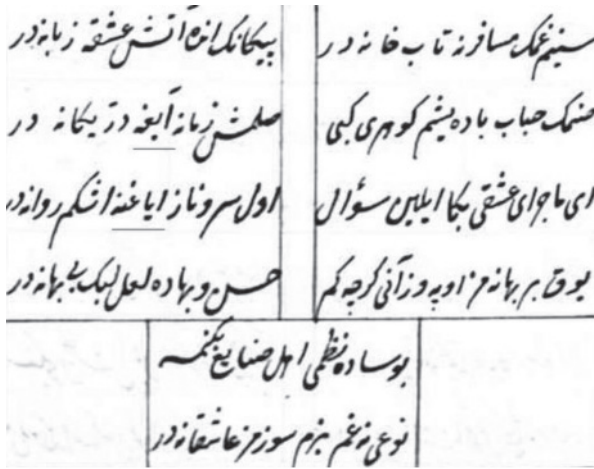 سینم غمک مسافرنه تاب خانه در پیکانک انده آتش عشقه زبانه در
صنمک حباب باده یشم کوهری کبی صلمش زمانه آیغه در یکانه در
ای ماجرای عشقی بکا ایلین سؤال اول سرو ناز ایاغنه اشکم روانه در
یوق بر بهانه مز اوپه وز آنی کرچه کم حسن و بهاده لعل لبک بی بهانه در
بو ساده نظمی اهل صنایع بکنمسه
نوعی نه غم بزم سوزمز عاشقانه در